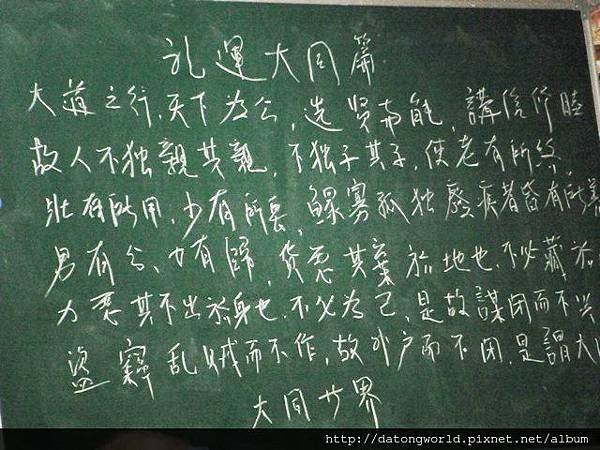 礼運大同篇
大道之行,天下為公,选贤与能,講信修睦
故人不独親其親,不独子其子,使老有所终,
壮有所用,少有所長,鰥寡孤独廢疾者皆有所養
男有分,女有歸,货恶其棄於地也,不必藏於
力恶其不出於身也,不必為己,是故謀闭而不兴
盗竊乱贼而不作,故外户而不闭,是謂大
大同世界
http://datongworld.pixnet.net/album